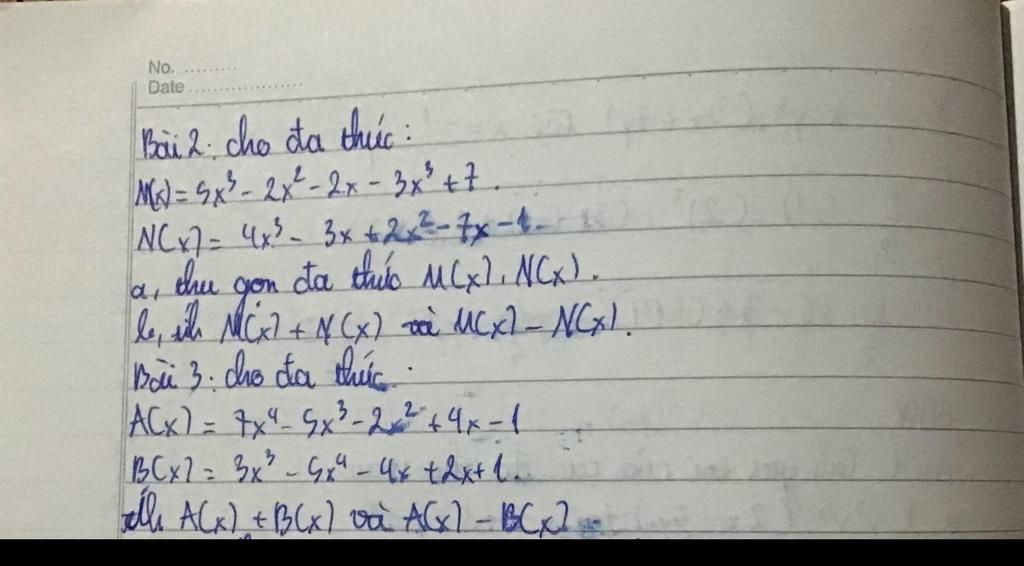 No. .........
Date ...................
Bài 2: cho đa thức:
M(x) = 5x³ - 2x² - 2x - 3x³ + 7.
N(x) = 4x³ - 3x + 2x² - 7x - 1.
a, thu gọn đa thức M(x), N(x).
b, tính M(x) + N(x) và M(x) - N(x).
Bài 3: cho đa thức:
A(x) = 7x⁴ - 5x³ - 2x² + 4x - 1
B(x) = 3x³ - 5x⁴ - 4x + 2x + 1.
tính A(x) + B(x) và A(x) - B(x).